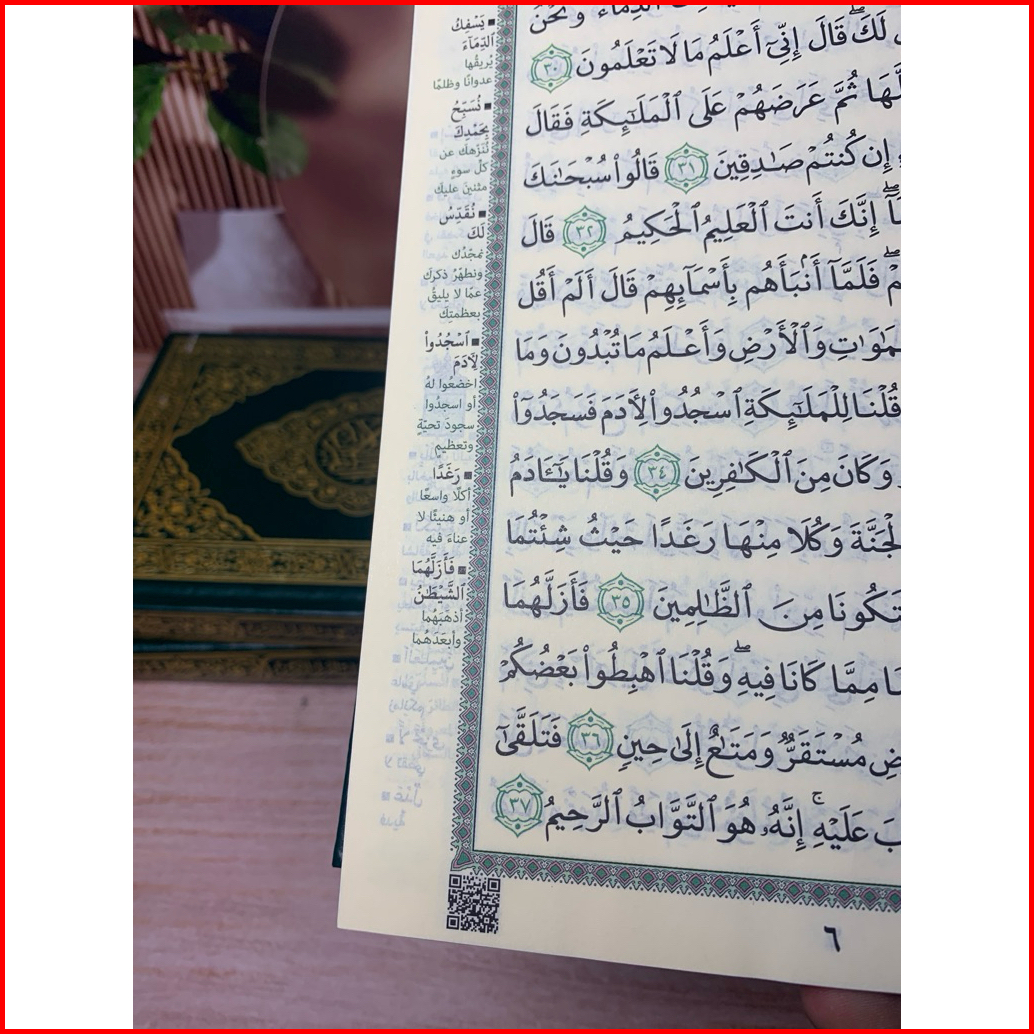 لَكَۖ قَالَ إِنِّيٓ أَعْلَمُ مَا لَا تَعْلَمُونَ ٣٠
ثُمَّ عَرَضَهُمْ عَلَى ٱلْمَلَٰٓئِكَةِ فَقَالَ
إِن كُنتُمْ صَٰدِقِينَ ٣١ قَالُوا۟ سُبْحَٰنَكَ
إِنَّكَ أَنتَ ٱلْعَلِيمُ ٱلْحَكِيمُ ٣٢ قَالَ
فَلَمَّآ أَنۢبَأَهُم بِأَسْمَآئِهِمْ قَالَ أَلَمْ أَقُل
وَٱلْأَرْضِ وَأَعْلَمُ مَا تُبْدُونَ وَمَا
قُلْنَا لِلْمَلَٰٓئِكَةِ ٱسْجُدُوا۟ لِأَٓدَمَ فَسَجَدُوٓا۟
وَكَانَ مِنَ ٱلْكَٰفِرِينَ ٣٤ وَقُلْنَا يَٰٓـَٔادَمُ
وَكُلَا مِنْهَا رَغَدًا حَيْثُ شِئْتُمَا
مِنَ ٱلظَّٰلِمِينَ ٣٥ فَأَزَلَّهُمَا
مِمَّا كَانَا فِيهِۖ وَقُلْنَا ٱهْبِطُوا۟ بَعْضُكُمْ
مُسْتَقَرٌّ وَمَتَٰعٌ إِلَىٰ حِينٍ ٣٦ فَتَلَقَّىٰٓ
عَلَيْهِۚ إِنَّهُۥ هُوَ ٱلتَّوَّابُ ٱلرَّحِيمُ ٣٧
■ يَسْفِكُ
ٱلدِّمَآءَ
يُريقُها
عدوانًا وظلمًا
■ نُسَبِّحُ
بِحَمْدِكَ
نُنَزّهك عن
كلّ سوءٍ
مثنينَ عليك
■ نُقَدِّسُ
لَكَ
نمجّدُك
ونطهّرُ ذكرك
عمّا لا يليقُ
بعظمتِك
■ ٱسْجُدُوا۟
لِأَٓدَمَ
اخضعُوا لهُ
أو اسجدُوا
سجودَ تحيّةٍ
وتعظيمٍ
■ رَغَدًا
أكلًا واسعًا
أو هنيئًا لا
عناءَ فيه
■ فَأَزَلَّهُمَا
ٱلشَّيْطَٰنُ
أذهَبَهُما
وأبعَدَهُما
٦